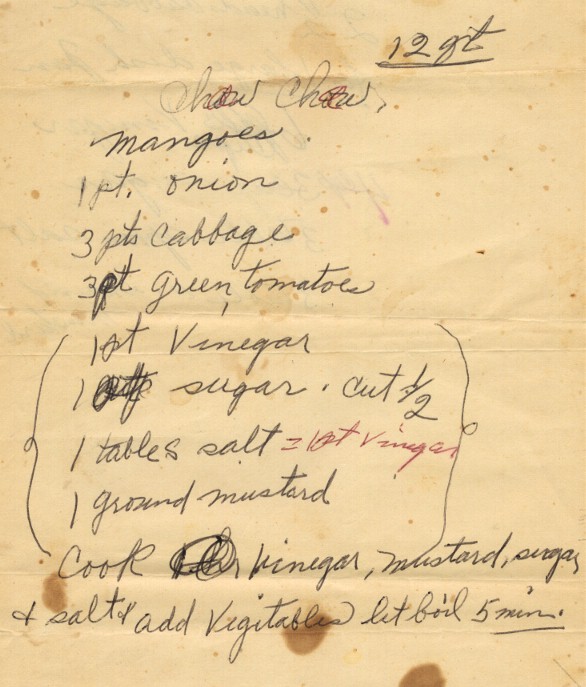 12 qt
Chow Chow,
mangoes.
1 pt. onion
3 pts cabbage
3 pt green tomatoes
1 pt Vinegar
1 sugar. cut 1/2
1 tables salt = 1 pt vinegar
1 ground mustard
Cook Vinegar, mustard, surgar
& salt & add Vegitables let boil 5 min.